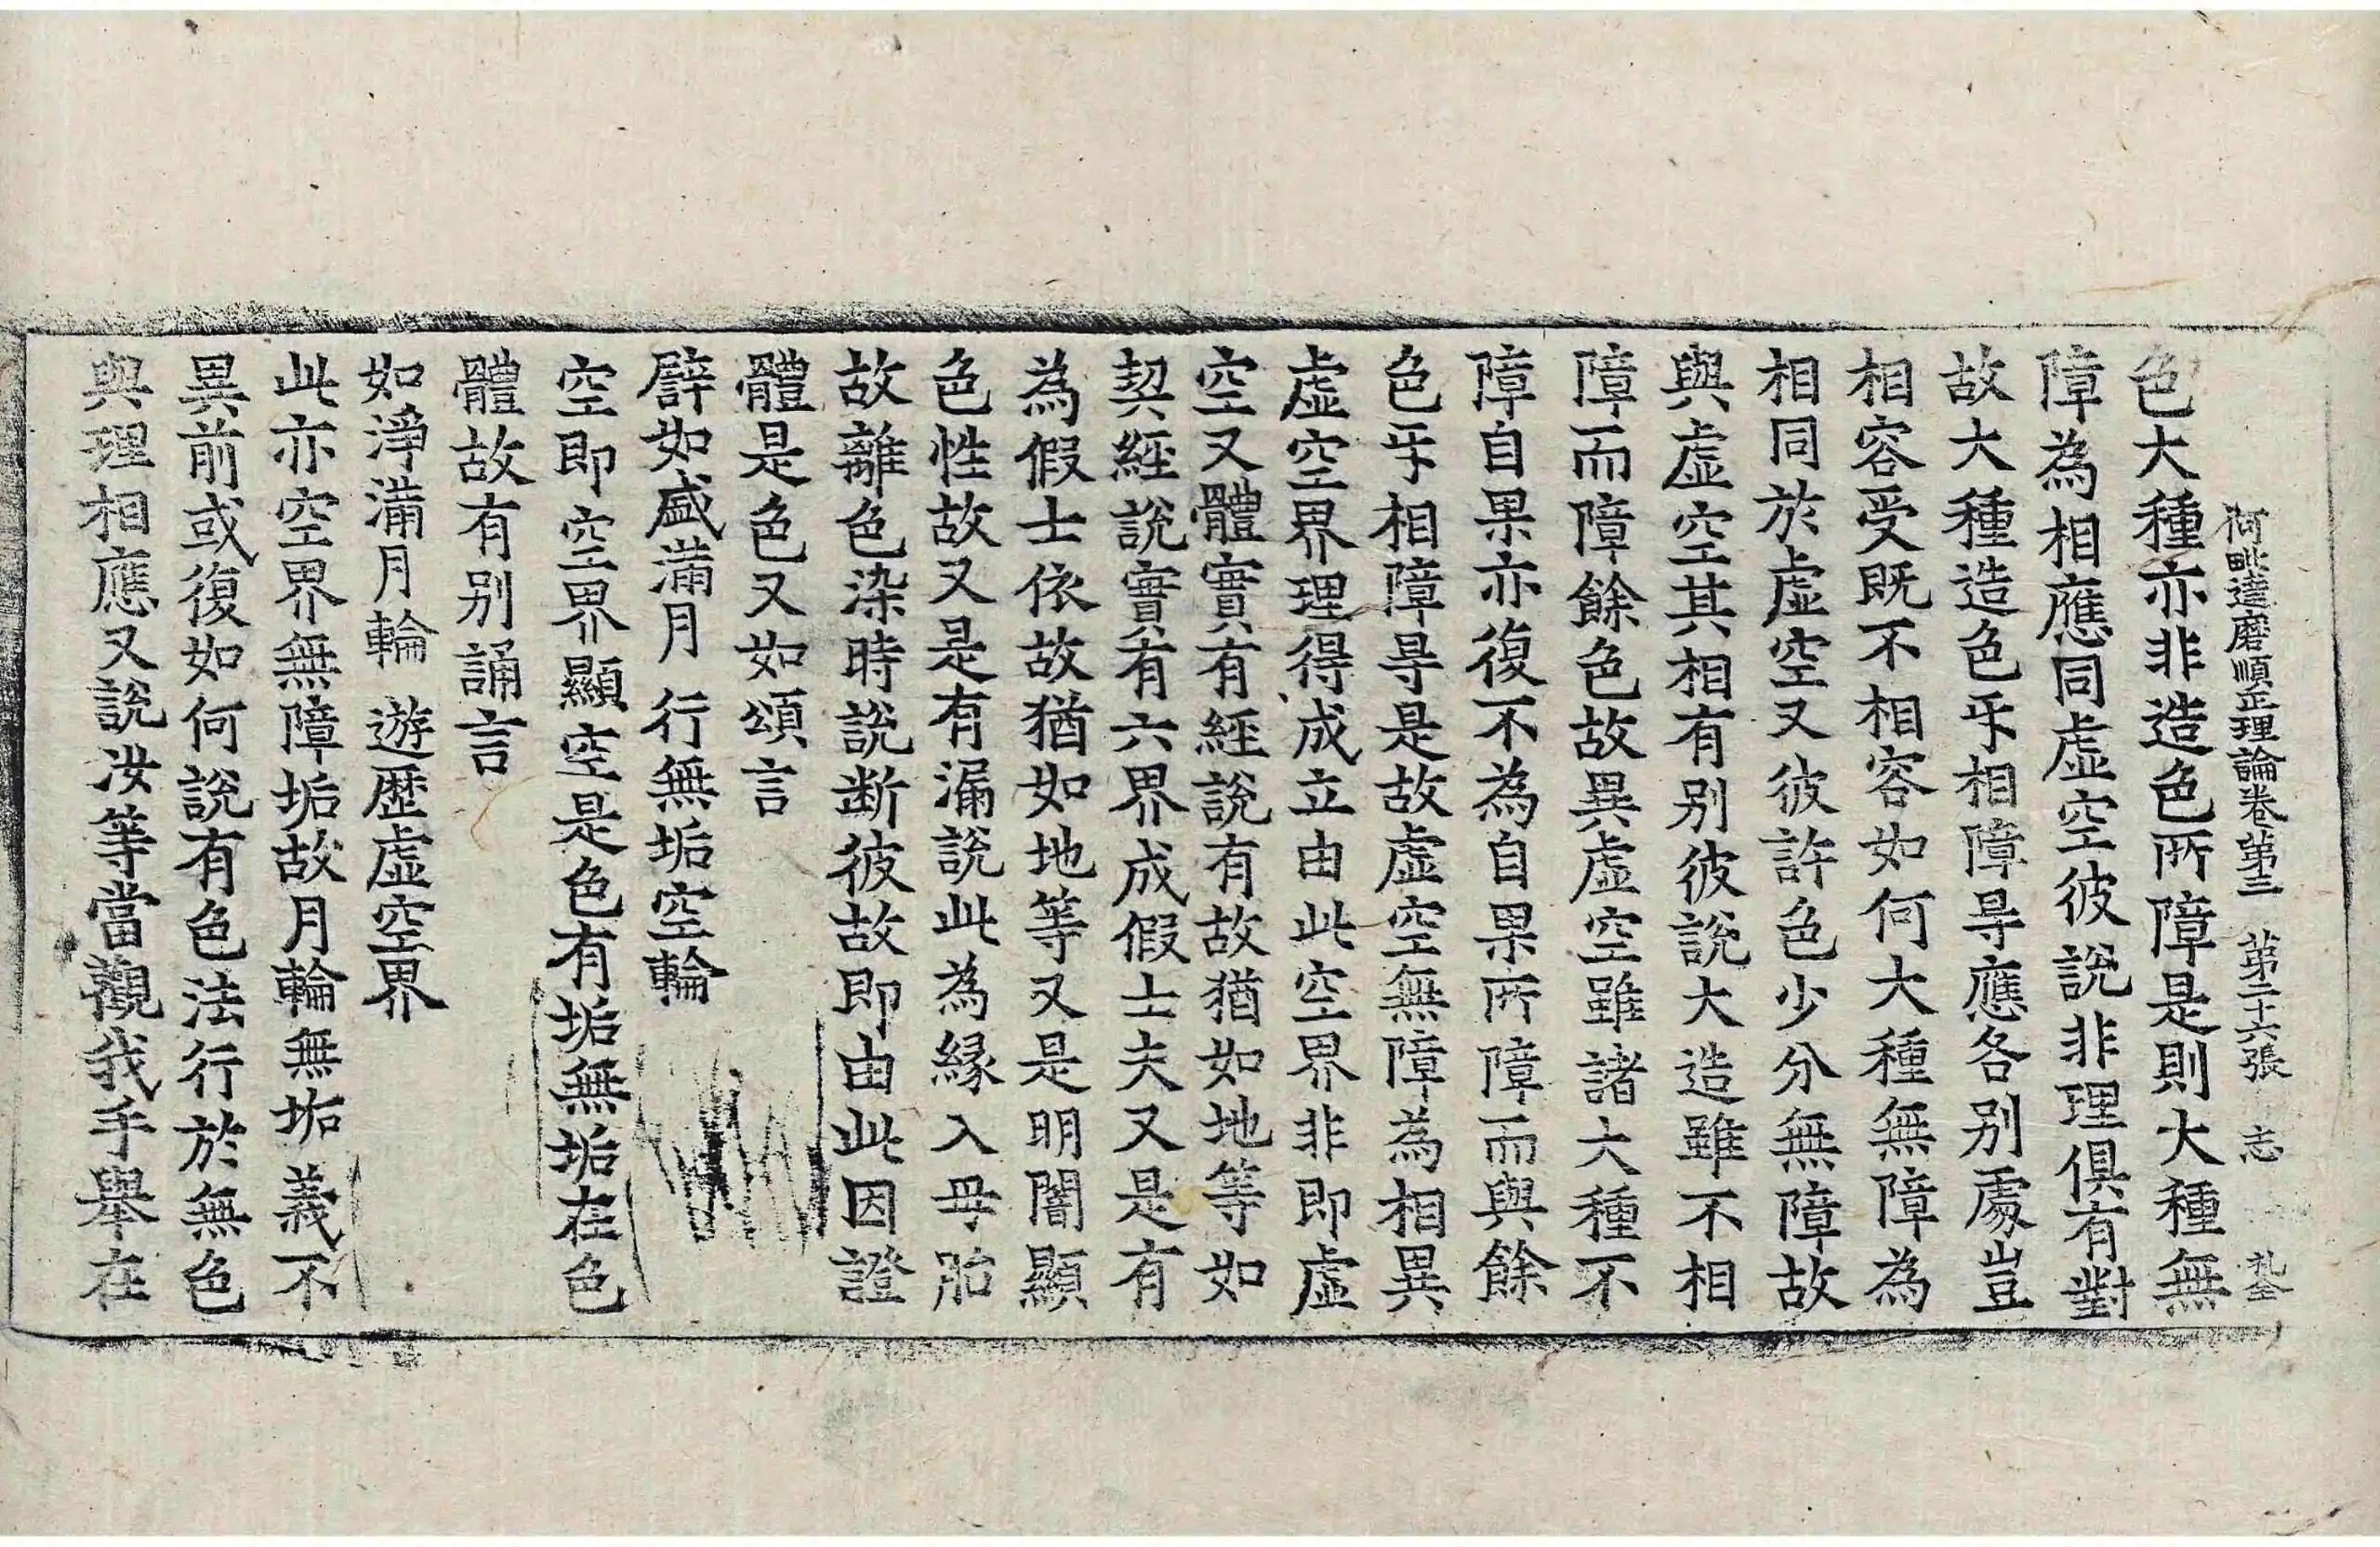 阿毗達磨順正理論卷第三 第二十六張 志
色大種亦非造色所障是則大種無
障為相應同虛空彼說非理俱有對
故大種造色㸦相障㝵應各别處豈
相容受既不相容如何大種無障為
相同於虛空又彼許色少分無障故
與虛空其相有别彼說大造雖不相
障而障餘色故異虛空雖諸大種不
障自果亦復不為自果所障而與餘
色㸦相障㝵是故虛空無障為相異
虛空界理得成立由此空界非即虛
空又體實有經說有故猶如地等如
契經說實有六界成假士夫又是有
為假士依故猶如地等又是明闇顯
色性故又是有漏說此為緣入母胎
故離色染時說断彼故即由此因證
體是色又如頌言
譬如盛滿月 行無垢空輪
空即空界顯空是色有垢無垢在色
體故有别誦言
如淨滿月輪 遊歷虛空界
此亦空界無障垢故月輪無垢義不
異前或復如何說有色法行於無色
與理相應又說汝等當觀我手舉在